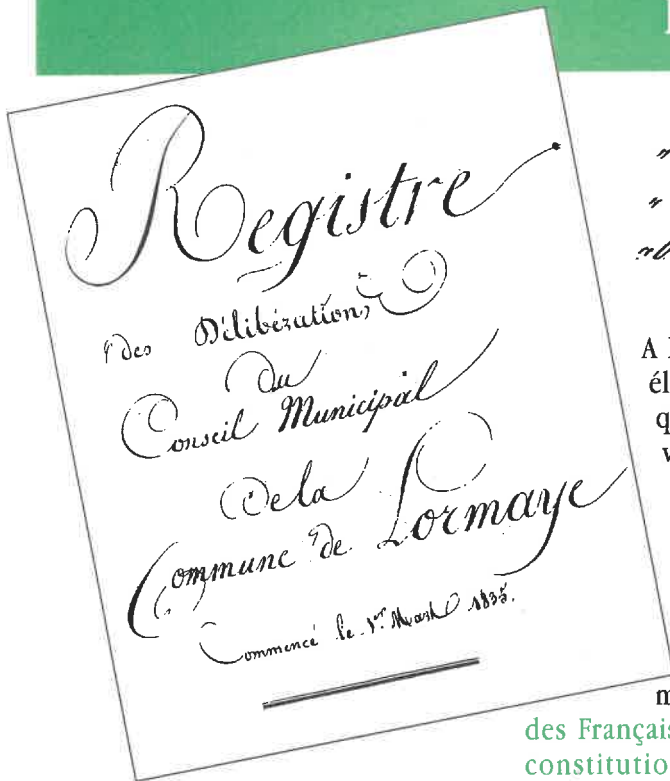 Registre
des Délibérations
Du
Conseil Municipal
De la
Commune de Lormaye
Commencé le 1er Mars 1835.
A
él
q
v
m
des Français
constitutio